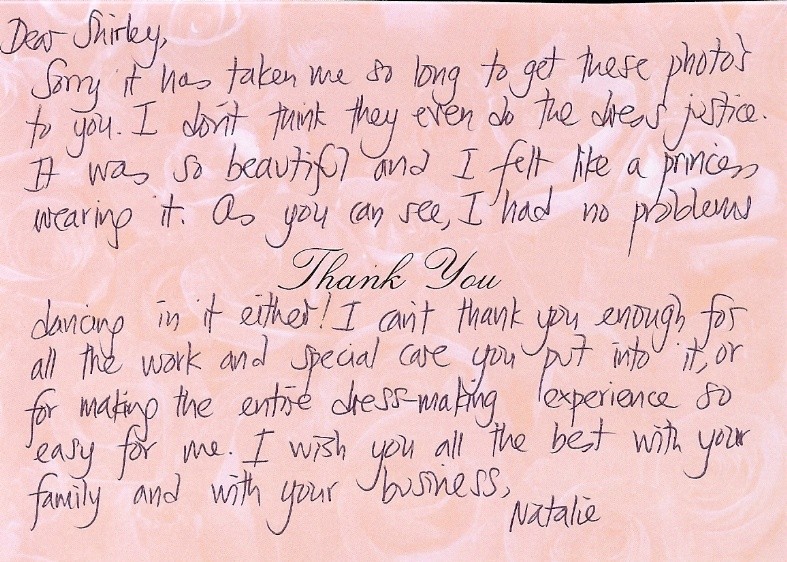 Dear Shirley,
Sorry it has taken me so long to get these photos
to you. I don't think they even do the dress justice.
It was so beautiful and I felt like a princess
wearing it. As you can see, I had no problems
Thank You
dancing in it either! I can't thank you enough for
all the work and special care you put into it, or
for making the entire dress-making experience so
easy for me. I wish you all the best with your
family and with your business,
Natalie